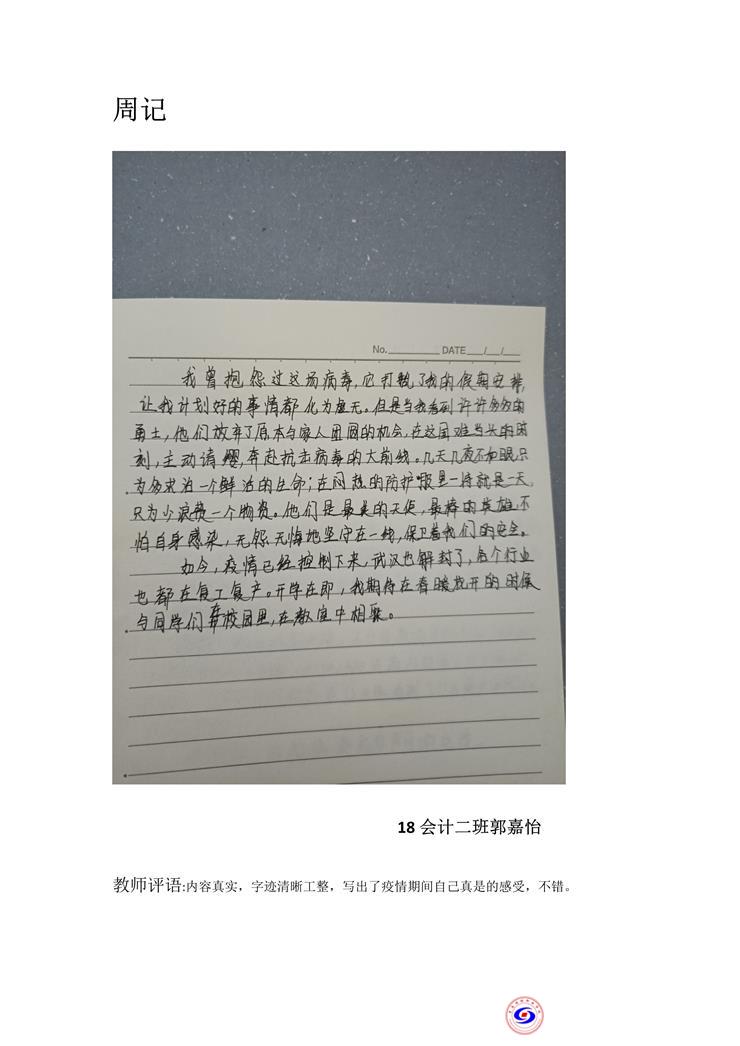 周记
No. DATE / /
我曾抱怨过这场病毒,它打乱了我的假期安排,
让我计划好的事情都化为虚无。但是当我看到许许多多的
勇士,他们放弃了原本与家人团圆的机会,在这国难当头的时
刻,主动请缨,奔赴抗击病毒的大前线。几天几夜不知眠,只
为多求治一个鲜活的生命;在闷热的防护服里一待就是一天,
只为少浪费一个物资。他们是最美的天使,最棒的英雄,不
怕自身感染,无怨无悔地坚守在一线,保卫着我们的安全。
如今,疫情已经控制下来,武汉也解封了,各个行业
也都在复工复产。开学在即,我期待在春暖花开的时候
与同学们在校园里,在教室中相聚。
18会计二班郭嘉怡
教师评语:内容真实,字迹清晰工整,写出了疫情期间自己真是的感受,不错。